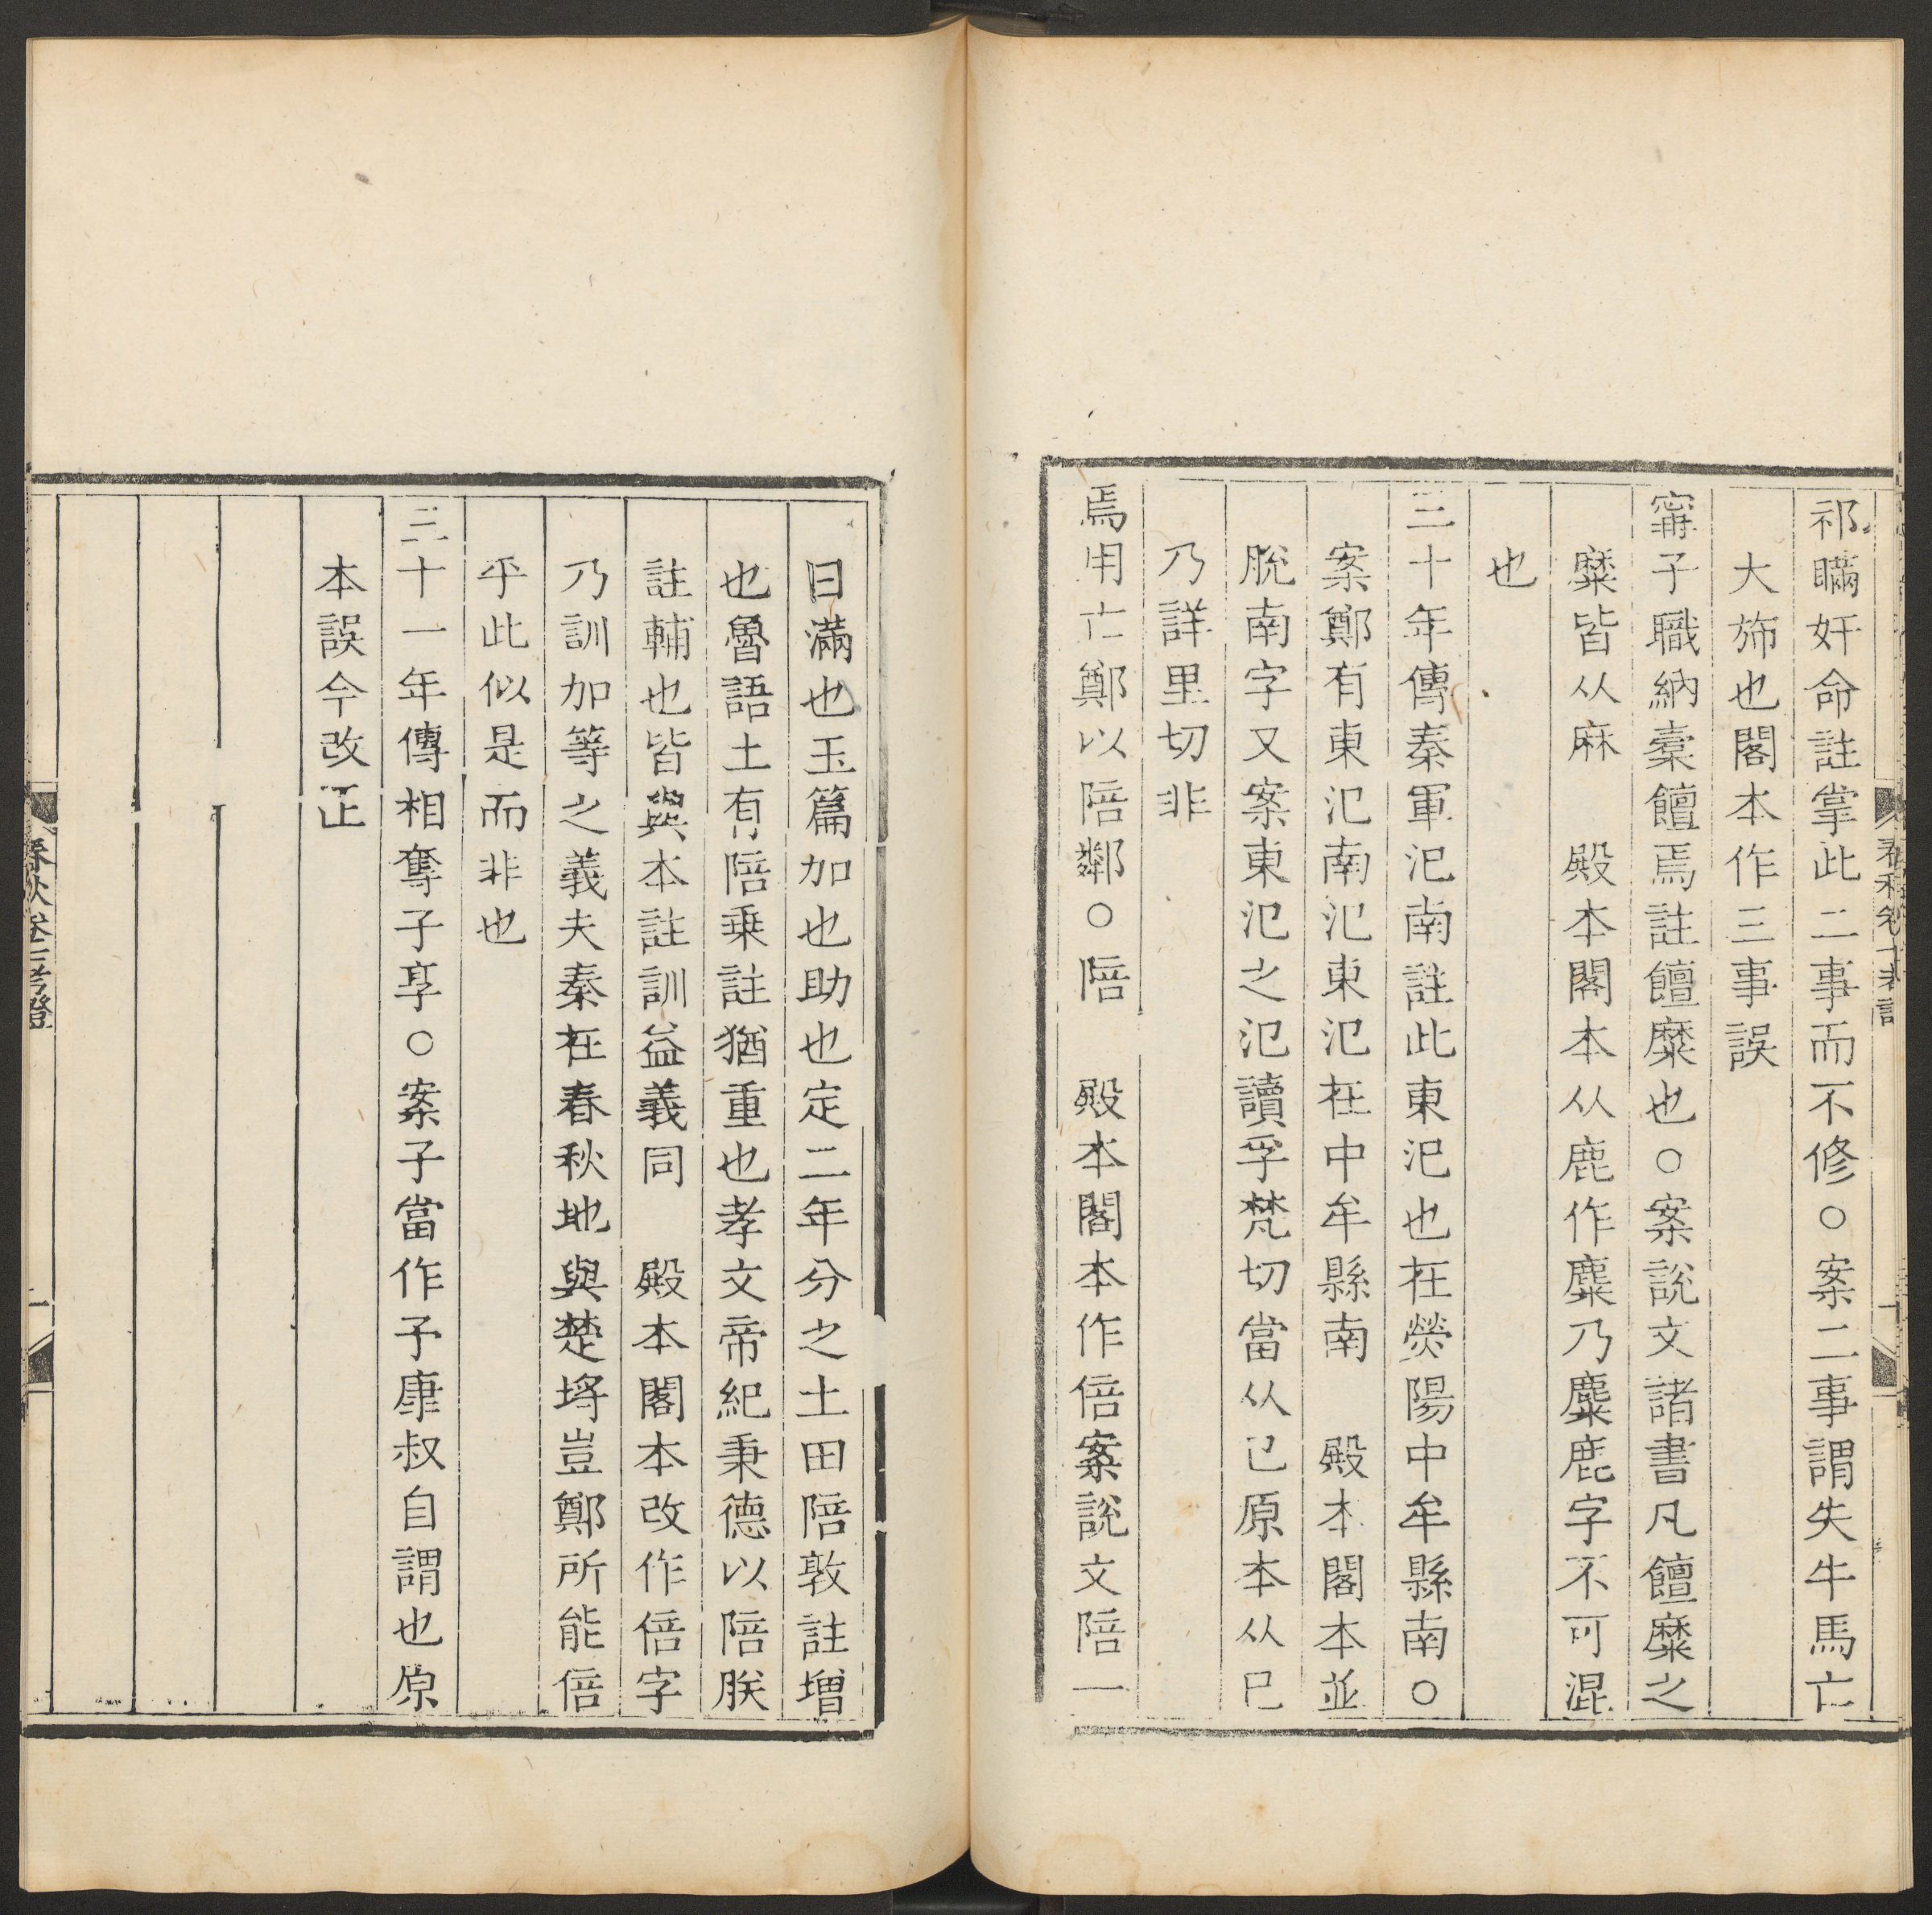 祁瞞奸命註掌此二事而不修○案二事謂失牛馬亡
大斾也閣本作三事誤
甯子職納橐饘焉註饘糜也○案說文諸書凡饘糜之
糜皆从麻 殿本閣本从鹿作麋乃麋鹿字不可混
也
三十年傳秦軍氾南註此東氾也在滎陽中牟縣南○
案鄭有東氾南氾東氾在中牟縣南 殿本閣本並
脫南字又案東氾之氾讀孚梵切當从㔾原本从巳
乃詳里切非
焉用亡鄭以陪鄰○陪 殿本閣本作倍案說文陪一
曰滿也玉篇加也助也定二年分之土田陪敦註增
也魯語土有陪乗註猶重也孝文帝紀秉德以陪朕
註輔也皆與本註訓益義同 殿本閣本改作倍字
乃訓加等之義夫秦在春秋地與楚埒豈鄭所能倍
乎此似是而非也
三十一年傳相奪子享○案子當作予康叔自謂也原
本誤今改正
春秋卷十二考證